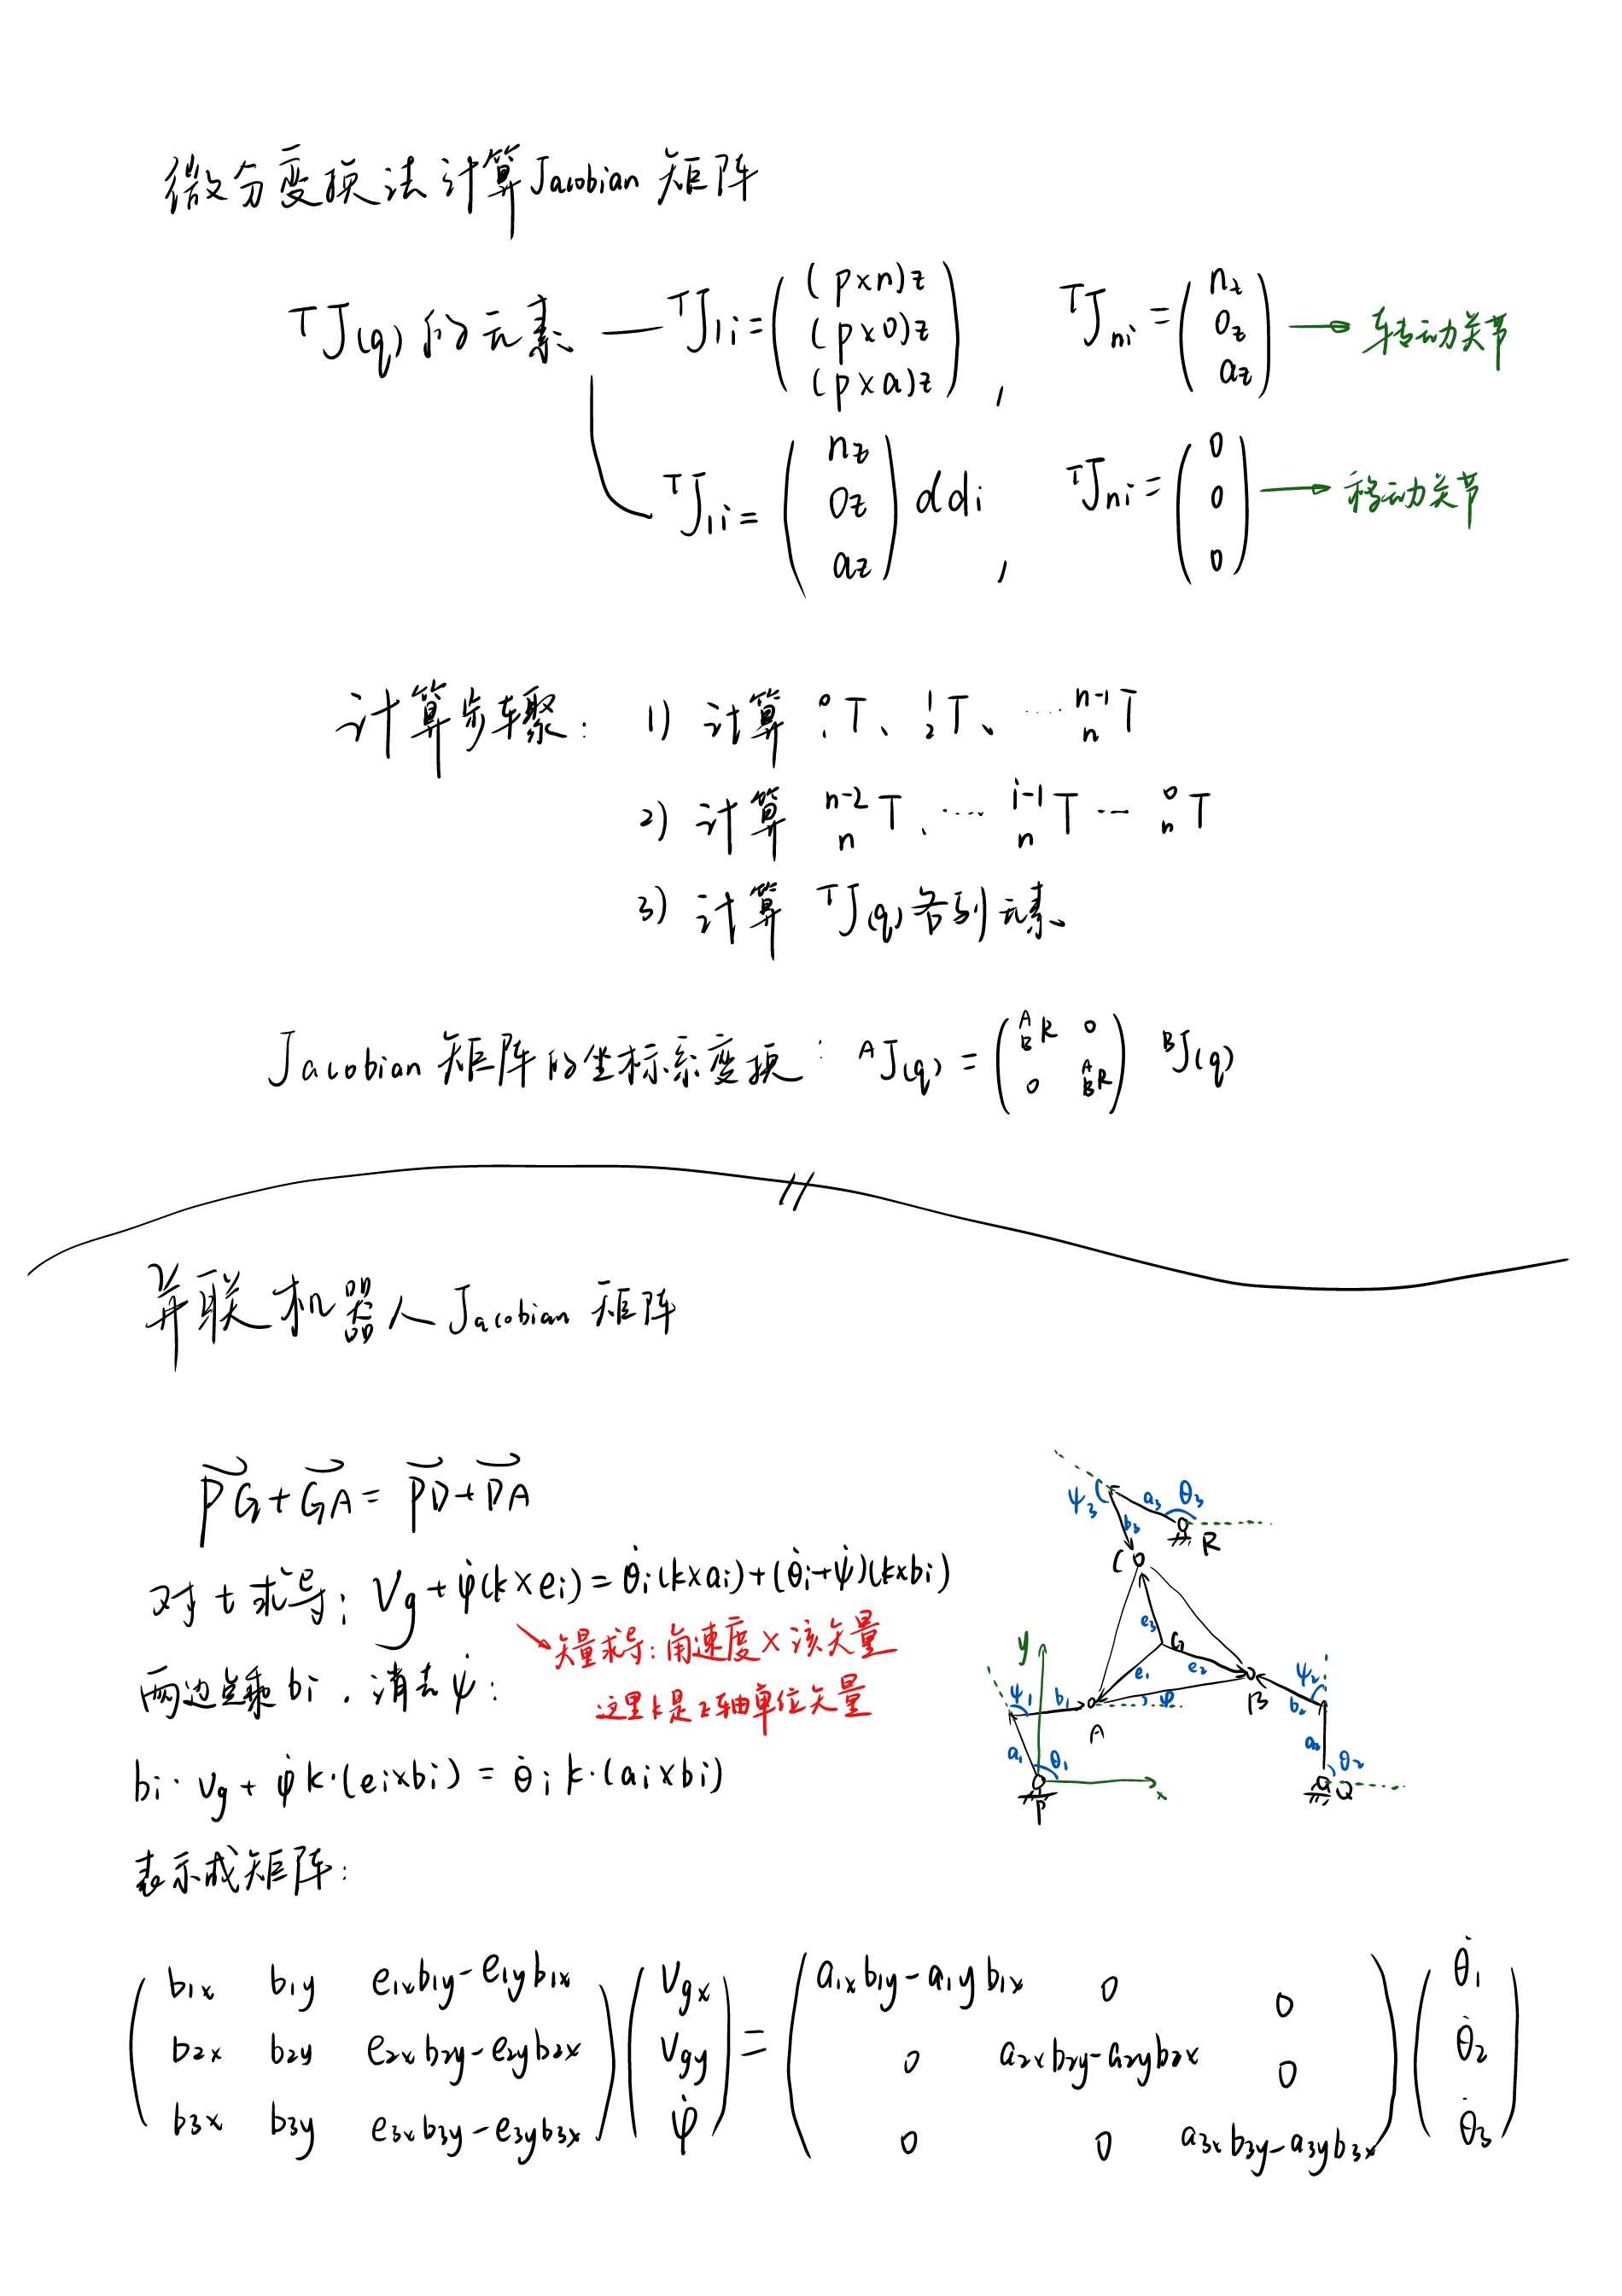 微分变换法计算Jacobian 矩阵
ᵀJ(q) 的元素 — ᵀJ_li = ( (p×n)z (p×o)z (p×a)z ) , ᵀJ_ni = ( nz oz az ) → 转动关节
ᵀJ_li = ( nz oz az ) ddi , ᵀJ_ni = ( 0 0 0 ) → 移动关节
计算步骤: 1) 计算 ⁰₁T、¹₂T、…… ⁿ⁻¹ₙT
2) 计算 ⁿ⁻²ₙT、…… ⁱ⁻¹ₙT … ⁰ₙT
3) 计算 ᵀJ(q)各列元素
Jacobian 矩阵的坐标系变换: ᴬJ(q) = ( ᴬ_BR 0 0 ᴬ_BR ) ᴮJ(q)
并联机器人Jacobian 矩阵
PG + GA = PD + DA
对 t 求导: Vg + φ̇(k×ei) = θ̇i(k×ai) + (θ̇i+ψ̇)(k×bi)
矢量求导: 角速度×该矢量
这里k是z轴单位矢量
两边点乘 bi, 消去ψ̇:
bi·vg + φ̇ k·(ei×bi) = θ̇i k·(ai×bi)
表示成矩阵:
( b1x b1y e1xb1y-e1yb1x
b2x b2y e2xb2y-e2yb2x
b3x b3y e3xb3y-e3yb3x ) ( Vgx Vgy φ̇ ) = ( a1xb1y-a1yb1x 0 0
0 a2xb2y-a2yb2x 0
0 0 a3xb3y-a3yb3x ) ( θ̇1 θ̇2 θ̇3 )
ψ3 a3 θ3
b3 R
C
e3 G
y e1 e2
ψ1 b1 A φ B ψ2 b2
a1 θ1 a2 θ2
P x Q